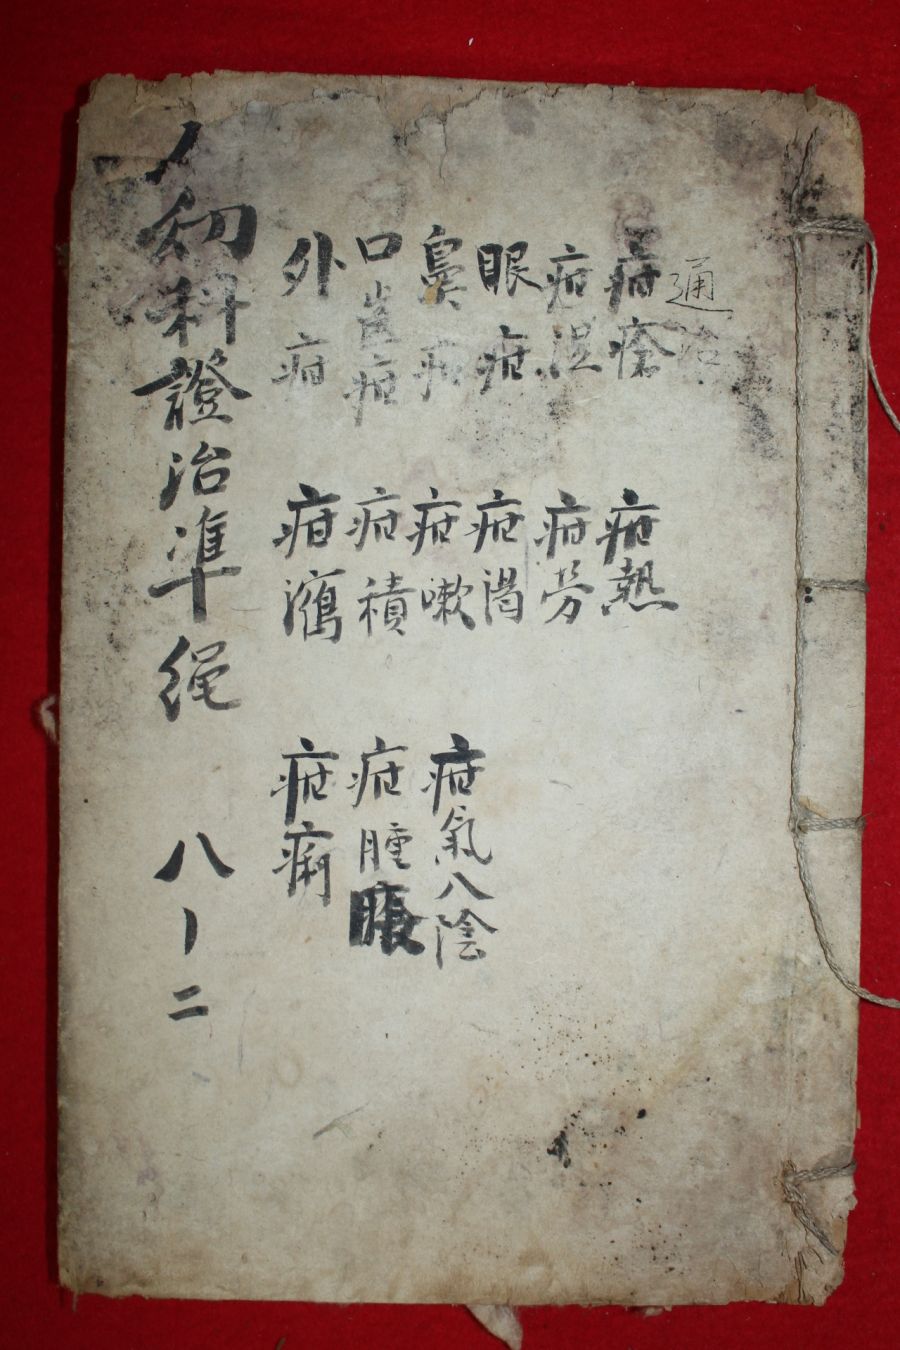 通治
疳瘡 疳熱
疳濕 疳劳
眼疳 疳渴 疳氣入陰
鼻疳 疳嗽
口齒疳 疳積 疳腫脹
外疳 疳瀉 疳痢
幼科證治準繩 八ノ二